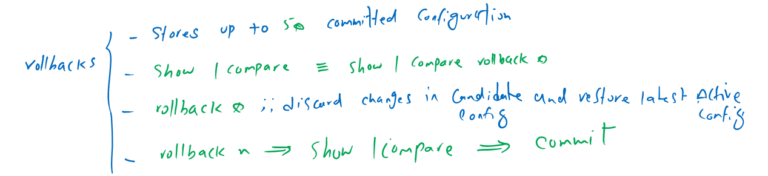 - Stores up to 50 committed Configuration
rollbacks
- Show | Compare ≡ show | Compare rollback 0
- rollback 0 ;; discard changes in Candidate Config and restore latest Active Config
- rollback n ⇒ Show | Compare ⇒ Commit